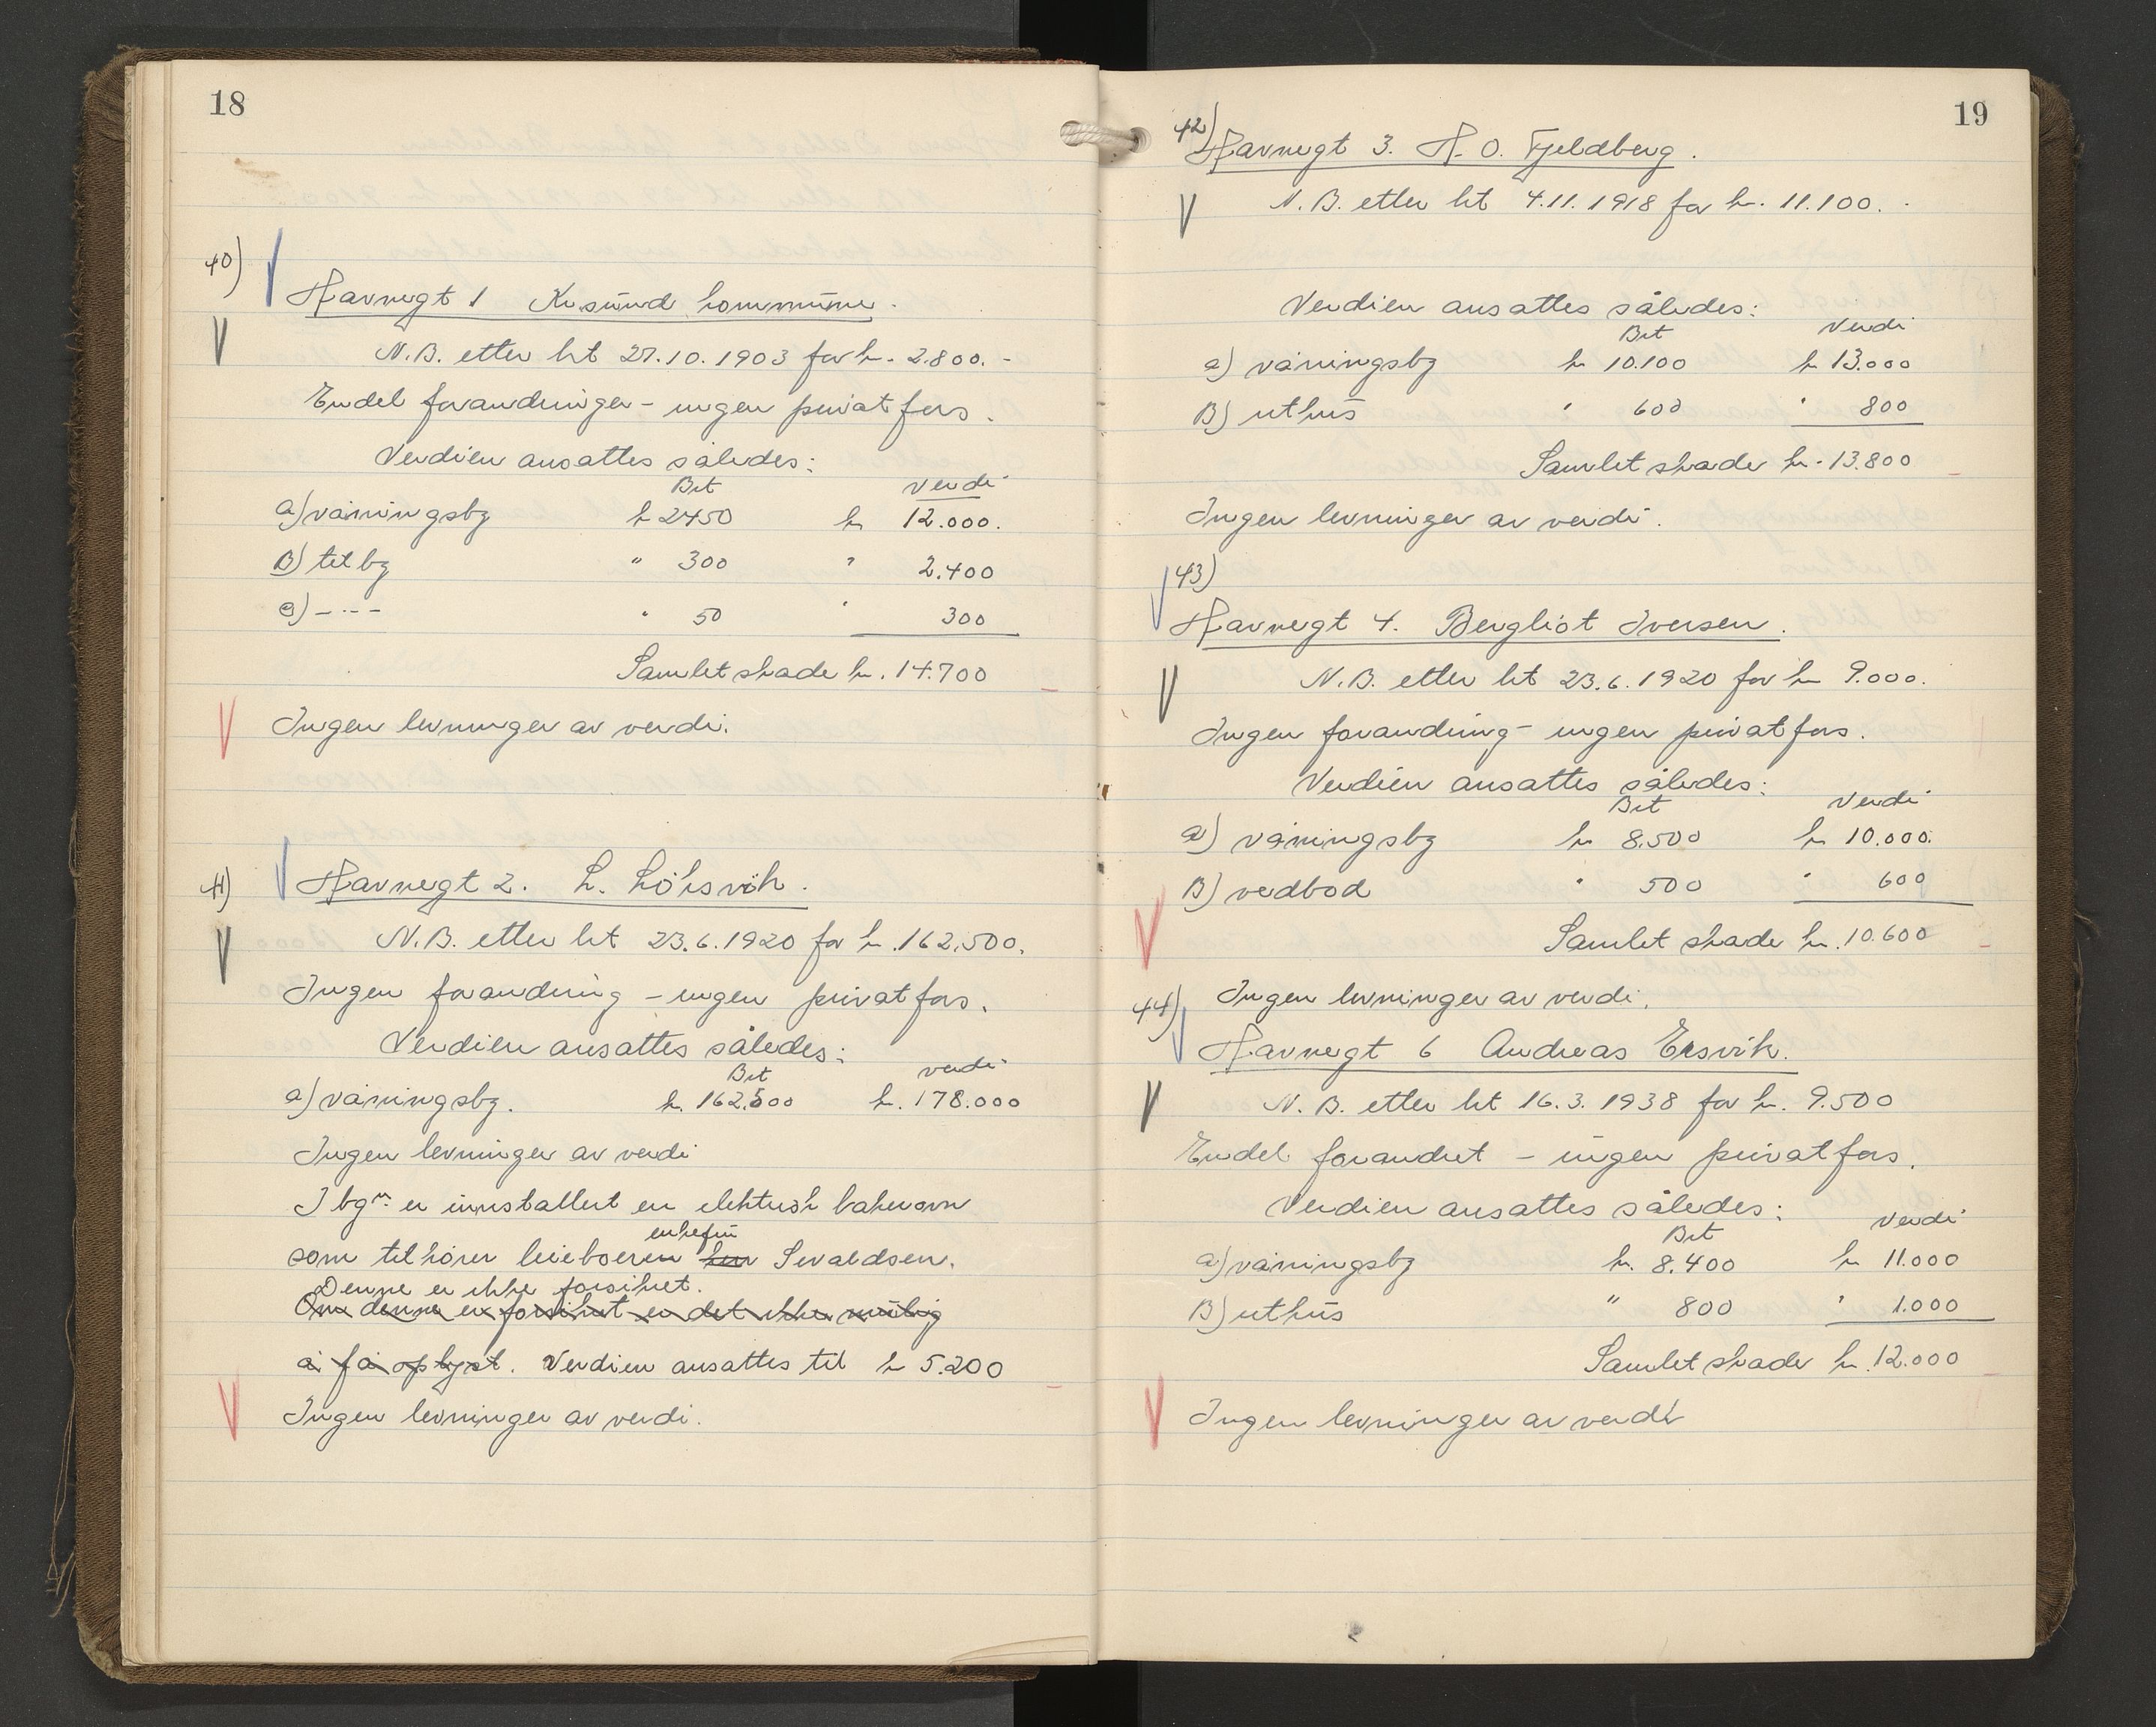 18
40)
Havnegt 1 Kr.sund kommune.
N.B. etter brt 27.10.1903 for kr. 2.800.-
Endel forandringer - ingen privat fors.
Verdien ansattes således:
Brt Verdi
a) våningsbg kr 2450 kr 12.000.
B) tilbg " 300 " 2.400
c) -..- " 50 " 300
Samlet skade kr. 14.700
Ingen levninger av verdi.
41) Havnegt 2. L. Löksvik.
N.B. etter brt 23.6.1920 for kr. 162.500.
Ingen forandring - ingen privat fors.
Verdien ansattes således:
Brt verdi
a) våningsbg. kr. 162.500 kr. 178.000
Ingen levninger av verdi
I bgn. er innstallert en elektrisk bakerovn
enkefru
som tilhörer leieboeren herr Sevaldsen.
Denne er ikke forsikret.
Om denne er forsikret er det ikke mulig
å få oplyst. Verdien ansattes til kr 5.200
Ingen levninger av verdi.
19
42)
Havnegt 3. H. O. Fjeldberg.
N.B. etter brt 4.11.1918 for kr. 11.100.
Verdien ansattes således:
Brt Verdi
a) våningsbg kr 10.100 kr 13.000
B) uthus " 600 " 800
Samlet skade kr. 13.800
Ingen levninger av verdi.
43)
Havnegt 4. Bergliot Iversen.
N.B. etter brt 23.6.1920 for kr 9.000.
Ingen forandring - ingen privat fors.
Verdien ansattes således:
Brt Verdi
a) våningsbg kr 8.500 kr 10.000.
B) vedbod " 500 " 600
Samlet skade kr. 10.600
Ingen levninger av verdi.
44)
Havnegt 6 Andreas Ersvik.
N.B. etter brt 16.3.1938 for kr. 9.500
Endel forandret - ingen privat fors.
Verdien ansattes således:
Brt Verdi
a) våningsbg kr. 8.400 kr 11.000
B) uthus " 800 " 1.000
Samlet skade kr. 12.000
Ingen levninger av verdi